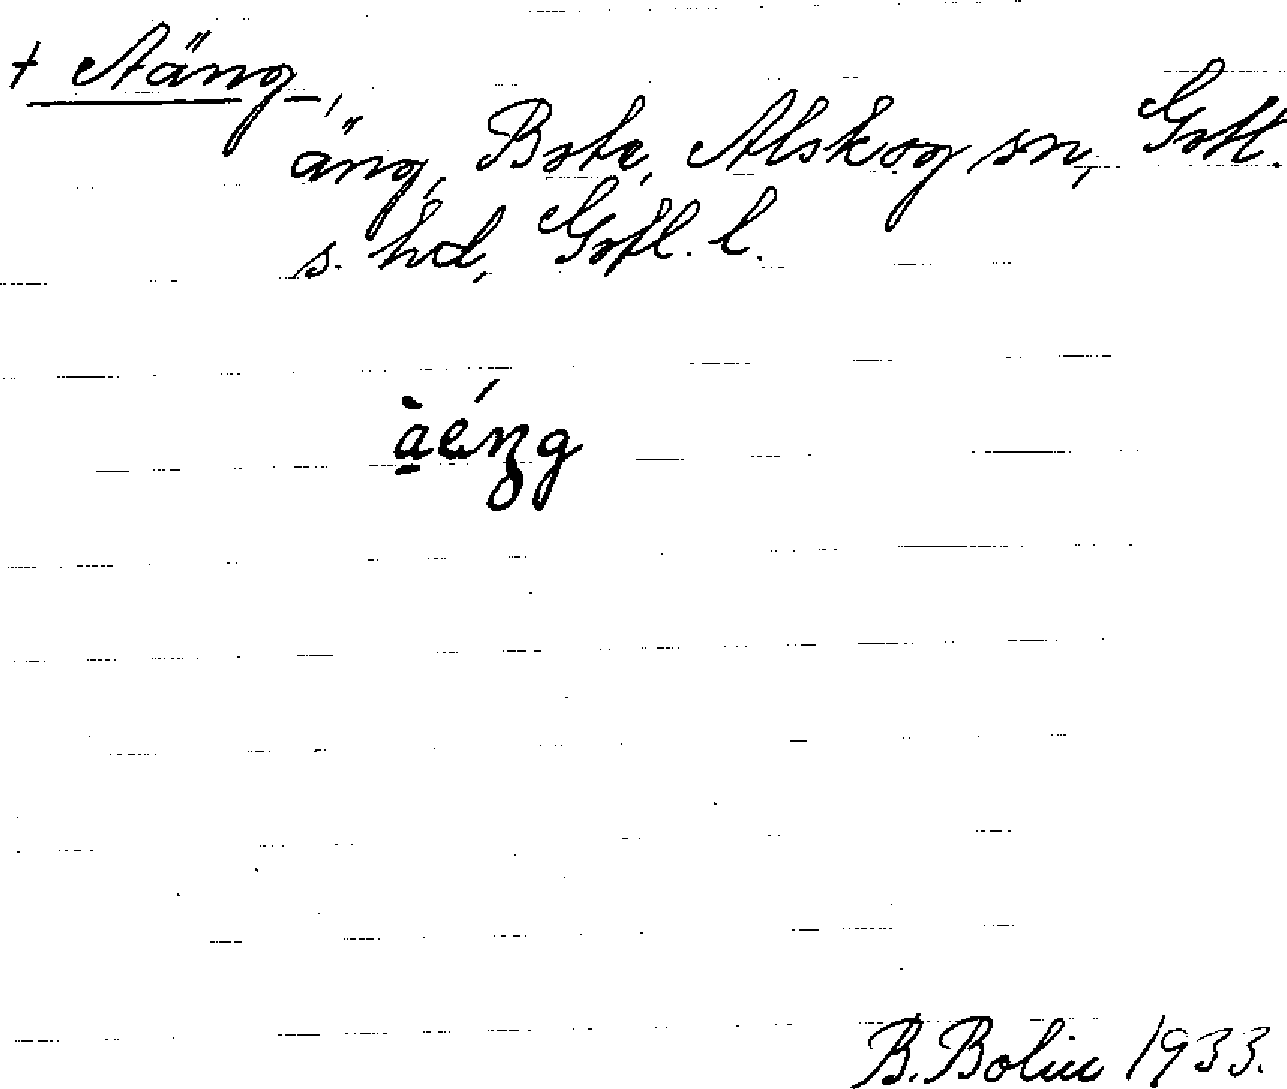 + Aäng,
äng, Bote, Alskog sn, Gotl.
s. hd, Gotl. l.
ȧ̱éŋg
B. Bolin 1933.